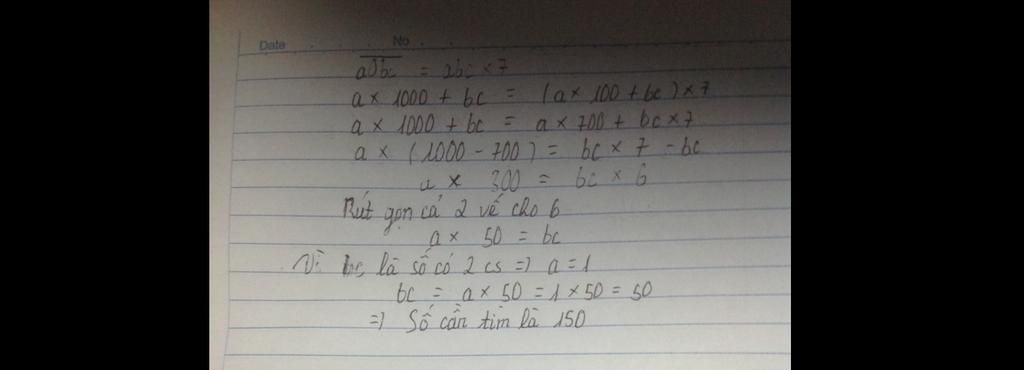 Date No
a0bc = abc × 7
a × 1000 + bc = (a × 100 + bc) × 7
a × 1000 + bc = a × 700 + bc × 7
a × (1000 - 700) = bc × 7 - bc
a × 300 = bc × 6
Rút gọn cả 2 vế cho 6
a × 50 = bc
Vì bc là số có 2 cs => a = 1
bc = a × 50 = 1 × 50 = 50
=> Số cần tìm là 150